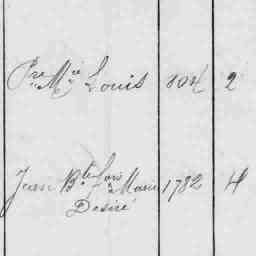 Pre Mie Louis 1804 2
Jean Bte Marie 1782 4
Desiré